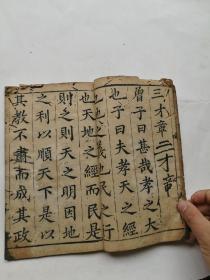 三才章 二才章
曾子曰甚哉孝之大
也子曰夫孝天之經
也地之義也民之行
也天地之經而民是
則之則天之明因地
之利以順天下是以
其教不肅而成其政